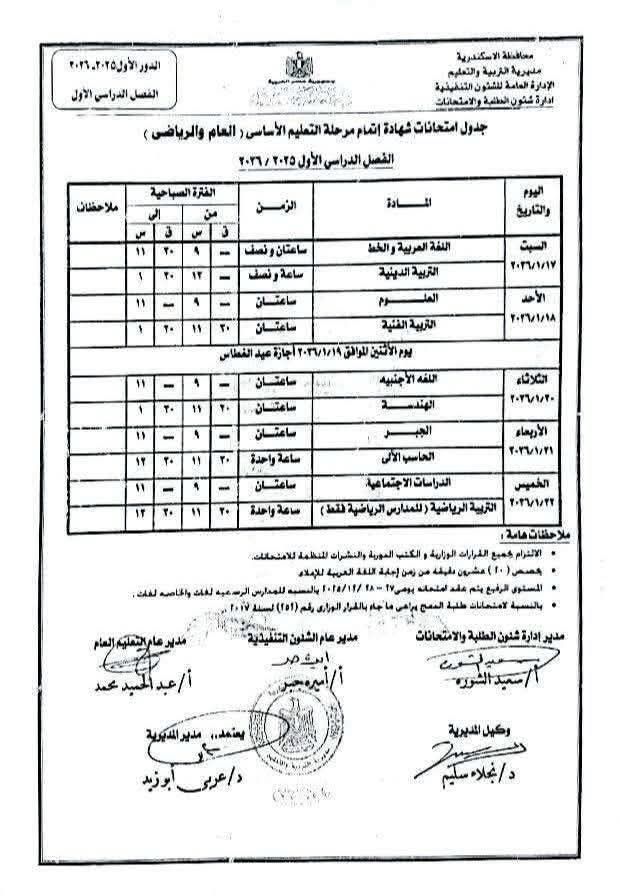 محافظة الاسكندرية
مديرية التربية والتعليم
الإدارة العامة للشئون التنفيذية
إدارة شئون الطلبة والامتحانات
جمهورية مصر العربية
الدور الأول ٢٠٢٥ـ ٢٠٢٦
الفصل الدراسي الأول
جدول امتحانات شهادة إتمام مرحلة التعليم الأساسى ( العام والرياضى )
الفصل الدراسي الأول ٢٠٢٥ / ٢٠٢٦
اليوم والتاريخ | المادة | الزمن | الفترة الصباحية | ملاحظات
من | إلى
ق | س | ق | س
السبت ٢٠٢٦/١/١٧ | اللغة العربية والخط | ساعتان ونصف | ـــ | ٩ | ٣٠ | ١١
التربية الدينية | ساعة ونصف | ـــ | ١٢ | ٣٠ | ١
الأحد ٢٠٢٦/١/١٨ | العلوم | ساعتان | ـــ | ٩ | ـــ | ١١
التربية الفنية | ساعتان | ٣٠ | ١١ | ٣٠ | ١
يوم الأثنين الموافق ٢٠٢٦/١/١٩ أجازة عيد الغطاس
الثلاثاء ٢٠٢٦/١/٢٠ | اللغه الأجنبيه | ساعتان | ـــ | ٩ | ـــ | ١١
الهندسة | ساعتان | ٣٠ | ١١ | ٣٠ | ١
الأربعاء ٢٠٢٦/١/٢١ | الجبر | ساعتان | ـــ | ٩ | ـــ | ١١
الحاسب الألى | ساعة واحدة | ٣٠ | ١١ | ٣٠ | ١٢
الخميس ٢٠٢٦/١/٢٢ | الدراسات الاجتماعية | ساعتان | ـــ | ٩ | ـــ | ١١
التربية الرياضية ( للمدارس الرياضية فقط ) | ساعة واحدة | ٣٠ | ١١ | ٣٠ | ١٢
ملاحظات هامة :
• الالتزام بجميع القرارات الوزارية و الكتب الدورية والنشرات المنظمة للامتحانات.
• يخصص ( ٢٠ ) عشرون دقيقه من زمن إجابة اللغة العربية للإملاء.
• المستوى الرفيع يتم عقد امتحانه يومى ٢٧ – ٢٨ /٢٠٢٥/١٢ بالنسبه للمدارس الرسميه لغات والخاصه لغات .
• بالنسبة لامتحانات طلبة الدمج يراعى ما جاء بالقرار الوزارى رقم (٢٥٢) لسنة ٢٠١٧ .
مدير إدارة شئون الطلبة والامتحانات
أ/ سعيد الشوره
مدير عام الشئون التنفيذية
أ/ أميره
مدير عام التعليم العام
أ/ عبد الحميد محمد
وكيل المديرية
د/ نجلاء سليم
يعتمد،، مدير المديرية
د/ عربى أبو زيد